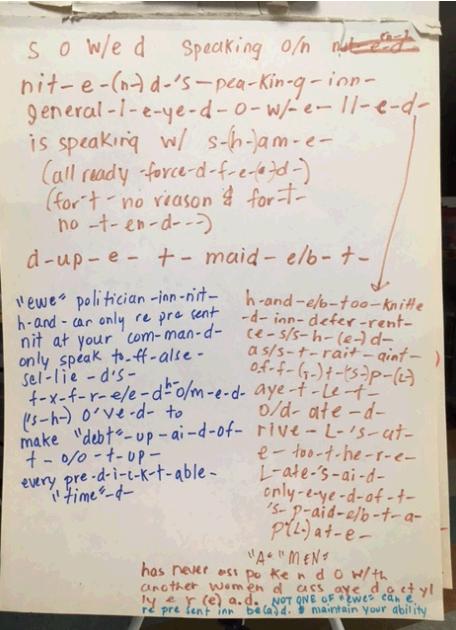 s o w/e d speaking o/n
nit-e-(n-) d-'s-pea-kin-g-inn-
general-l-e-ye-d-o-w/-e-ll-e-d-
is speaking w/ s-(h-)am-e-
(all ready -force-d-f-e-(a-)d-)
(for-t- no reason & for-t-
no -t-en-d--)
d-up-e- t- maid-e/b-t-
"ewe" politician-inn-nit-
h-and-car only re pre sent
nit at your com-man-d-
only speak to-ff-alse-
sel-lie-d's-
f-x-f-r-e/e-d-h-o/m-e-d-
('s-h-) o've-d- to
make "debt"-up-ai-d-of-
t-o/o-t-up-
every pre-d-i-c-k-t-able-
"time"-d-
h-and-e/b-too-knitte
-d-inn-defer-rent-
ce-s/s-h-(e-)d-
as/s-t-rait-aint-
of-f-(r-)t-(s-)p-(L-)
aye-t-Le-t-
o/d-ate-d-
rive-L-'s-at-
e-too-t-he-r-e-
L-ate-'s-ai-d-
only-e-ye-d-of-t-
's-p-aid-e/b-t-a-
p(L-)at-e-
"A-"MEN"
has never ass po ke n d o w/th
another women d ass aye d actyl
ly e r (e) a.d. NOT ONE OF "ewe" can e
re pre sent inn be(a)d. & maintain your ability